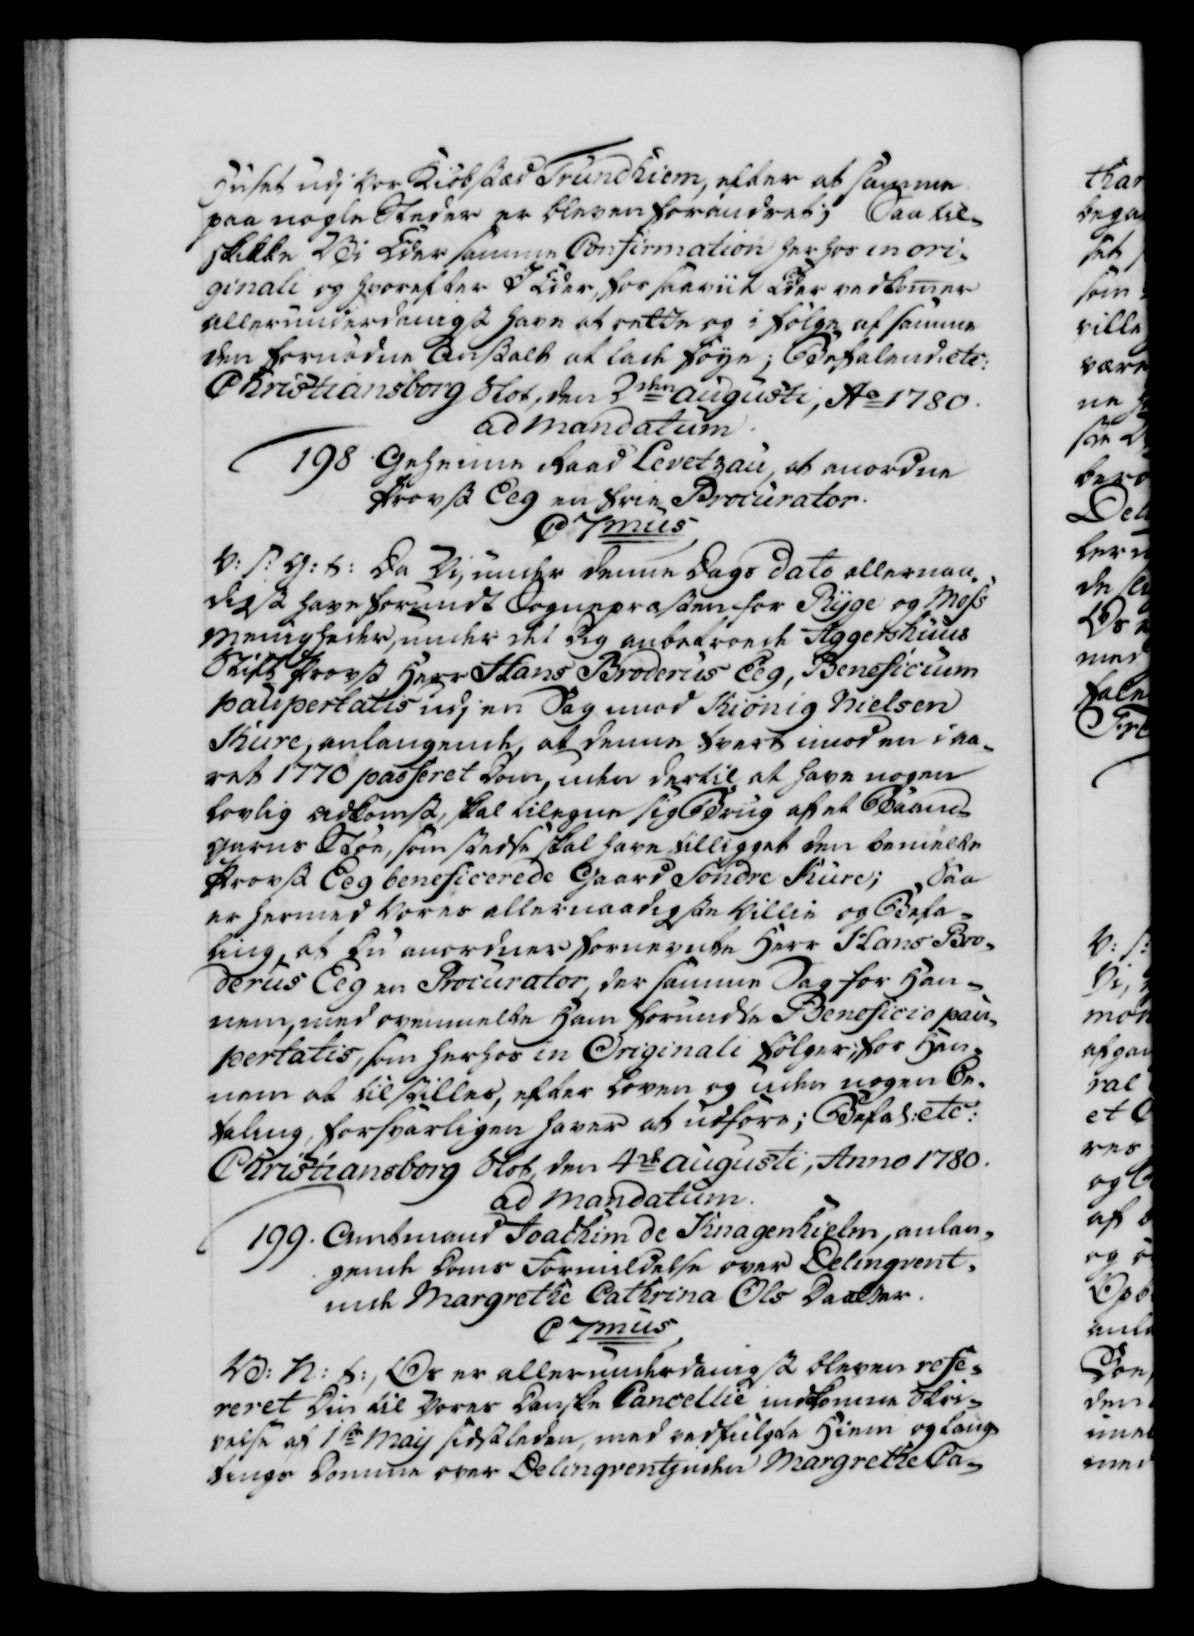 Huset udj vor Kiøbstæd Trundhiem, efter at samme
paa nogle Steder er bleven forandret; Saa til-
skikke Vi Eder samme Confirmation herhos in ori-
ginali og hvorefter I Eder, for saaviit Eder vedkommer
allerunderdanigst have at rette og i følge af samme
den fornødne Anstalt at lade føye; Befalend: etc:
Christiansborg Slot, den 2den Augusti, Ao 1780.
ad mandatum.
198 Geheime Raad Levetzau, at anordne
Provst Eeg en frie Procurator.
C 7mus
V: S: G: T: Da Vi under denne Dags dato allernaa-
digst have forundt Sognepræsten for Rÿge og Moss
Meenigheder, under det Dig anbetroede Aggershuus
Stift Provst Herr Hans Broderus Eeg, Beneficium
paupertatis udj en Sag imod Kiönig Nielsen
Kure, anlangende, at denne tvert imod en i Aa-
ret 1770 passeret Dom, uden dertil at have nogen
lovlig Adkomst, skal tilegne sig Brug af et
garns Støe, som stedse skal have tilligget den bemelte
Provst Eeg beneficerede Gaard Søndre Kure; Saa
er hermed Vores allernaadigste Villie og Befa-
ling, at Du anordner fornevnte Herr Hans Bro-
derus Eeg en Procurator, der samme Sag for Han-
nem, med ovenmelte Ham forundte Beneficio pau-
pertatis, som herhos in Originali følger, for Han-
nem at tilstilles, efter Loven og uden nogen Be-
taling, forsvarligen haver at udføre; Befal: etc:
Christiansborg Slot, den 4de Augusti, Anno 1780.
ad mandatum.
199. Amtmand Joachim de Knagenhielm, anlan-
gende Doms Formildelse over Delinqvent-
inde Margrethe Cathrina Ols Daatter.
C 7mus
V: N: T:, Os er allerunderdanigst bleven refe-
reret Din til Vores Danske Cancellie indkomne Skri-
velse af 1ste Maij sidstleden, med vedfulgte Hiem og Laug-
tings Domme over Delinqventinden Margrethe Ca-